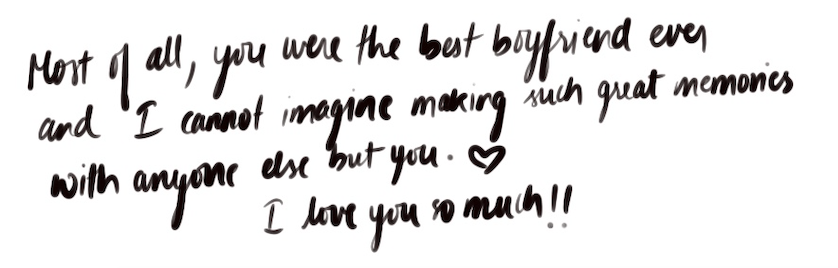 Most of all, you were the best boyfriend ever
and I cannot imagine making such great memories
with anyone else but you. ♡
I love you so much!!